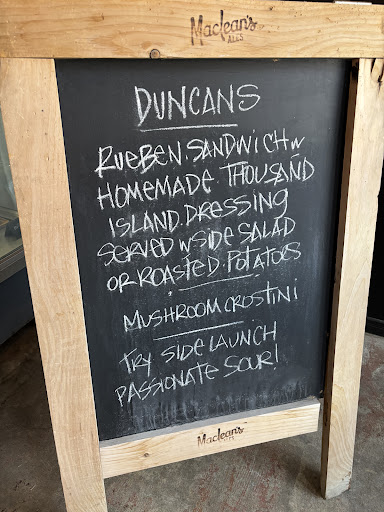 Maclean's
ALES
DUNCANS
RUEBEN. SANDWICH W
HOMEMADE. THOUSAND
ISLAND. DRESSING
SERVED W SIDE SALAD
OR ROASTED. POTATOES
MUSHROOM CROSTINI
TRY SIDE LAUNCH
PASSIONATE SOUR!
Maclean's
ALES